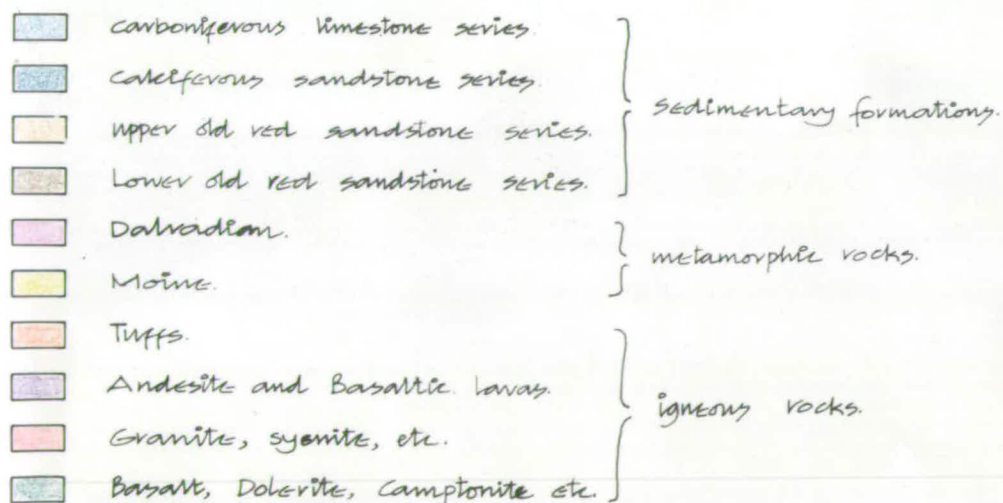 Carboniferous limestone series.
Calciferous sandstone series.
upper old red sandstone series.
Lower old red sandstone series.
sedimentary formations.
Dalradian.
Moine.
metamorphic rocks.
Tuffs.
Andesite and Basaltic lavas.
Granite, syenite, etc.
Basalt, Dolerite, Camptonite etc.
igneous rocks.